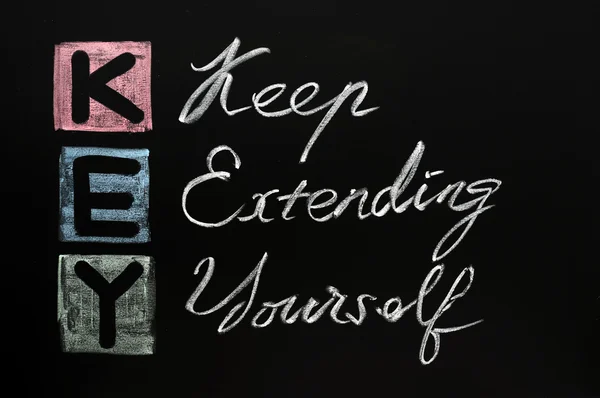 K Keep
E Extending
Y Yourself